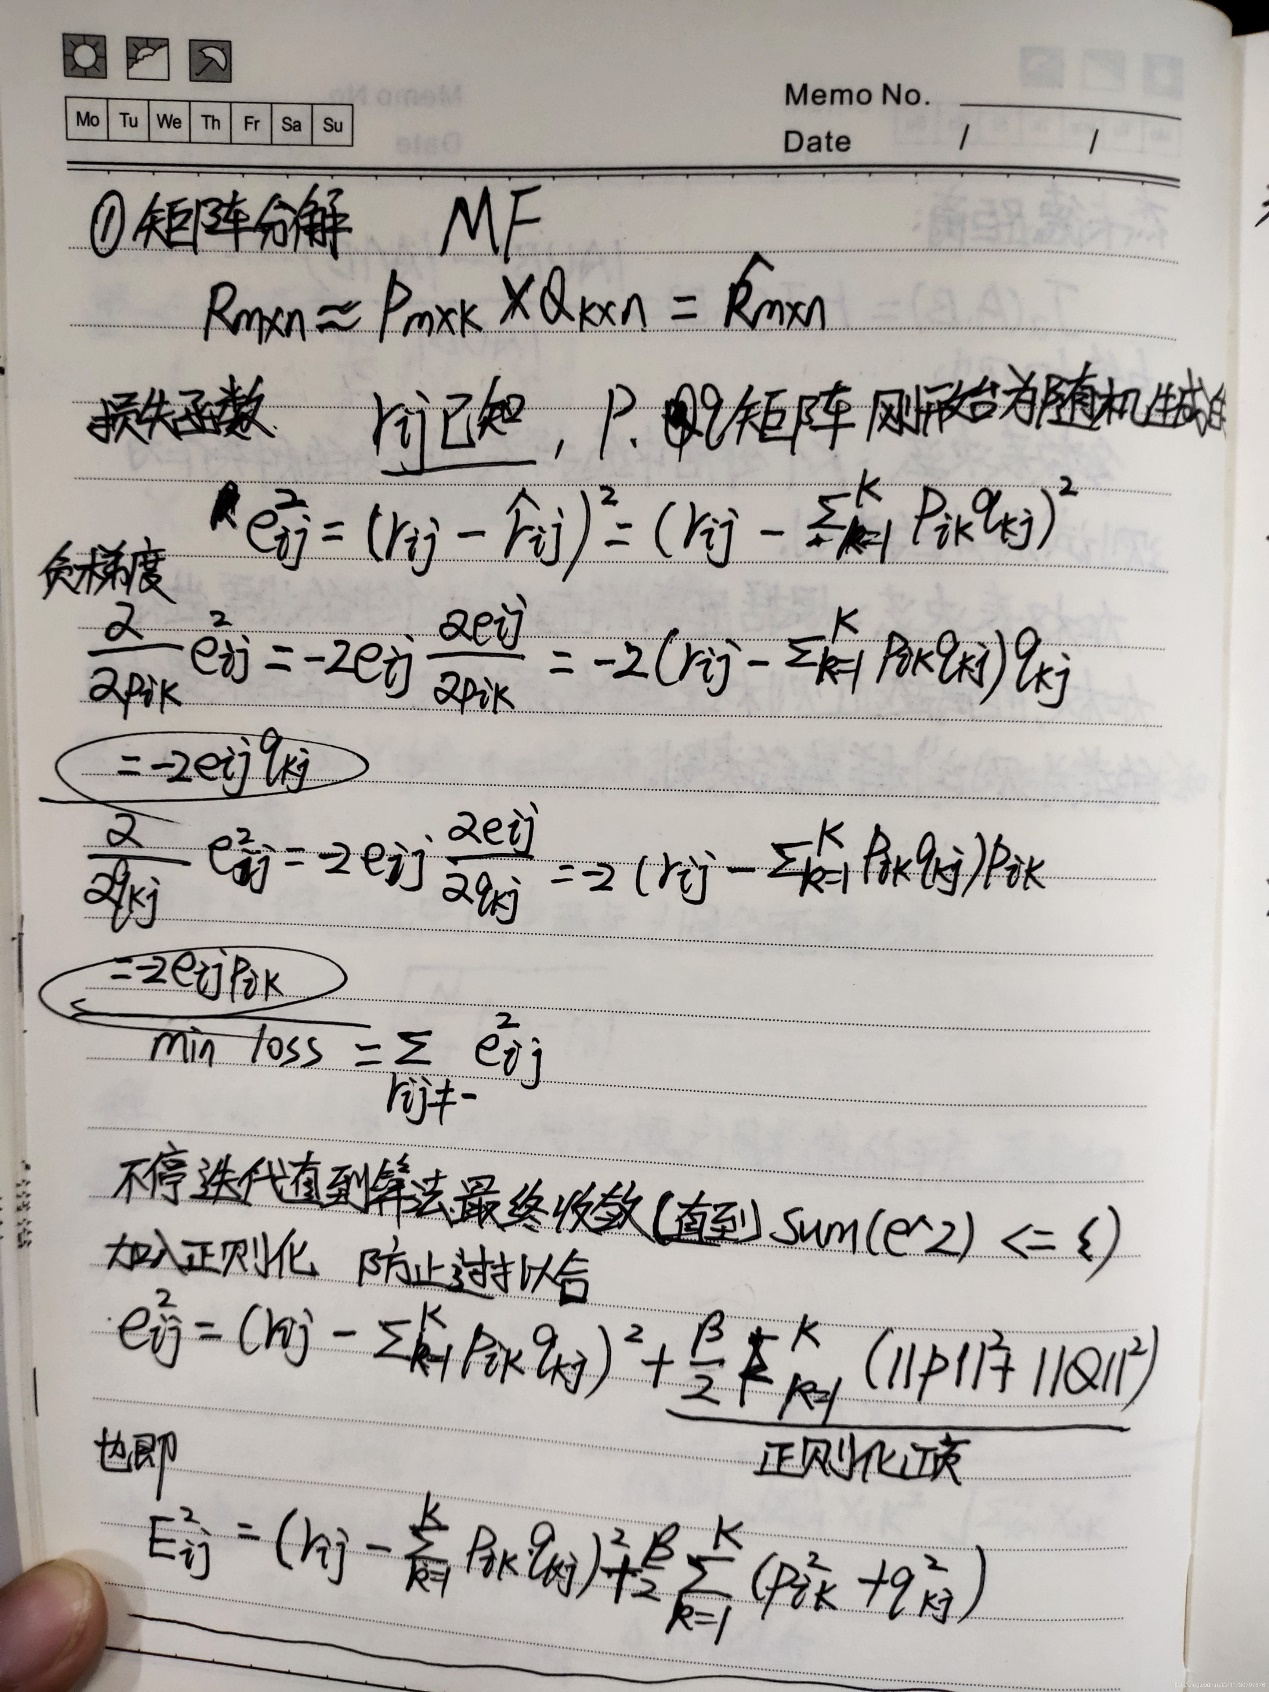 Mo Tu We Th Fr Sa Su
Memo No.
Date / /
①矩阵分解 MF
Rm×n≈Pm×k×Qk×n=R̂m×n
损失函数 rij已知,P.Qq矩阵刚开始为随机生成的
e²ij=(rij-r̂ij)²=(rij-Σᴷk=1 Pikqkj)²
负梯度
∂/∂pik e²ij=-2eij ∂eij/∂pik=-2(rij-Σᴷk=1 pikqkj)qkj
=-2eijqkj
∂/∂qkj e²ij=-2eij ∂eij/∂qkj=-2(rij-Σᴷk=1 pikqkj)pik
=-2eijpik
min loss=Σrij≠- e²ij
不停迭代直到算法最终收敛(直到sum(e^2)<=ξ)
加入正则化 防止过拟合
e²ij=(rij-Σᴷk=1 pikqkj)²+β/2 Σᴷk=1(||P||²+||Q||²)
正则化项
也即
E²ij=(rij-Σᴷk=1 pikqkj)²+β/2 Σᴷk=1(p²ik+q²kj)